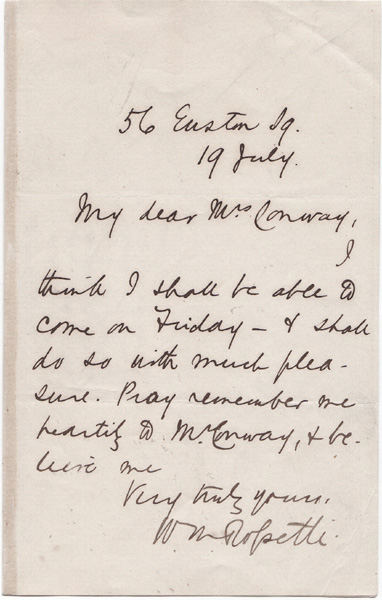 56 Euston Sq.
19 July.
My dear Mrs Conway,
I
think I shall be able to
come on Friday – & shall
do so with much plea-
sure. Pray remember me
heartily to Mr Conway, & be-
lieve me
Very truly yours,
W M Rossetti.